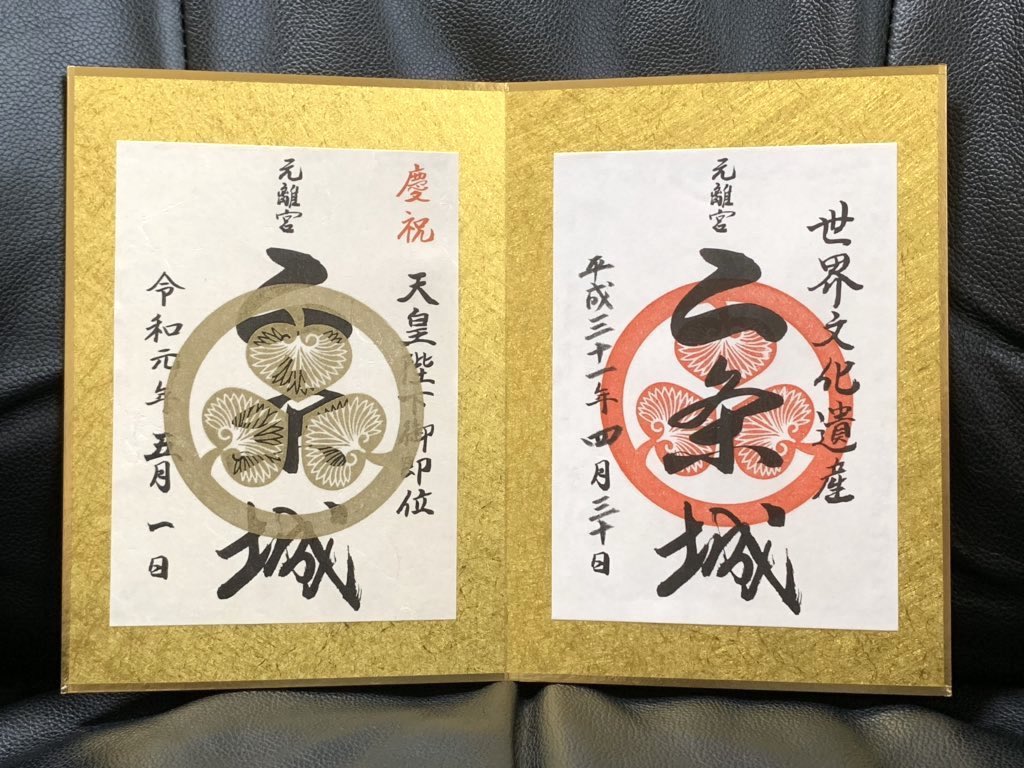 世界文化遺産
元離宮
二条城
平成三十一年四月三十日
慶祝
天皇陛下御即位
元離宮
二条城
令和元年五月一日